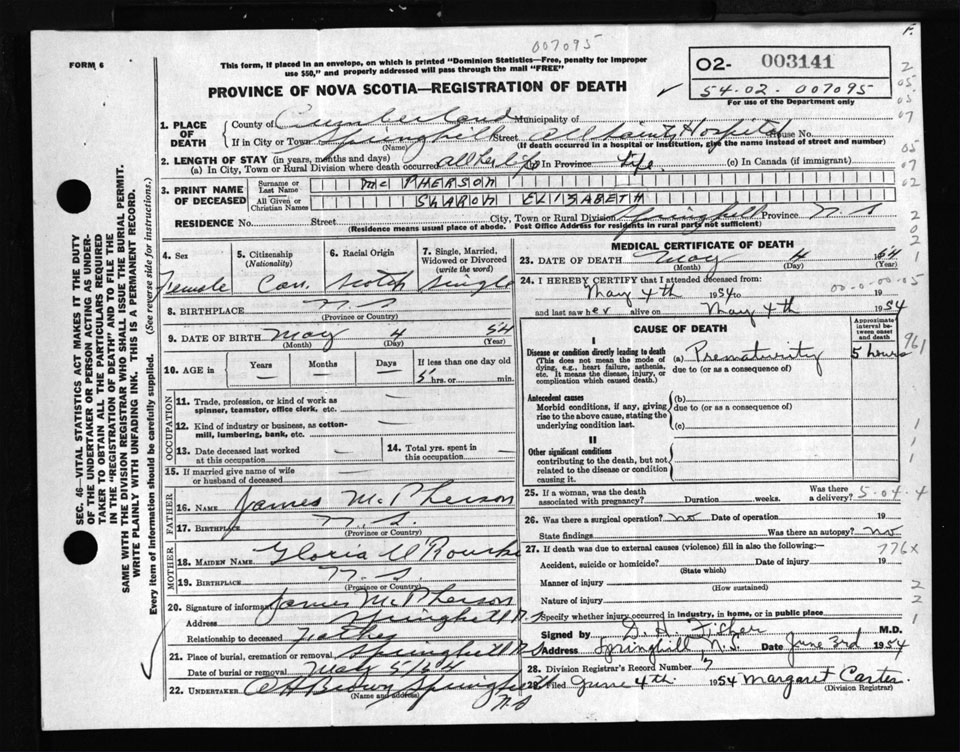 007095
F.
FORM 6
This form, if placed in an envelope, on which is printed "Dominion Statistics—Free, penalty for improper use $50," and properly addressed will pass through the mail "FREE"
02- 003141
54-02-007095
For use of the Department only
PROVINCE OF NOVA SCOTIA—REGISTRATION OF DEATH
1. PLACE OF DEATH
County of Cumberland Municipality of
If in City or Town Springhill Street All Saints Hospital House No.
(Name) (If death occurred in a hospital or institution, give the name instead of street and number)
2. LENGTH OF STAY (in years, months and days)
(a) In City, Town or Rural Division where death occurred all her life In Province Life. (c) In Canada (if immigrant)
3. PRINT NAME OF DECEASED
Surname or Last Name Mc PHERSON
All Given or Christian Names SHARON ELIZABETH
RESIDENCE No. Street City, Town or Rural Division Springhill Province N.S
(Residence means usual place of abode. Post Office Address for residents in rural parts not sufficient)
4. Sex Female
5. Citizenship (Nationality) Can.
6. Racial Origin Scotch
7. Single, Married, Widowed or Divorced (write the word) Single
8. BIRTHPLACE N.S
(Province or Country)
9. DATE OF BIRTH May 4 54
(Month) (Day) (Year)
10. AGE in Years — Months — Days — If less than one day old 5 hrs. or min.
OCCUPATION
11. Trade, profession, or kind of work as spinner, teamster, office clerk, etc. —
12. Kind of industry or business, as cotton-mill, lumbering, bank, etc. —
13. Date deceased last worked at this occupation —
14. Total yrs. spent in this occupation —
15. If married give name of wife or husband of deceased —
FATHER
16. NAME James McPherson
17. BIRTHPLACE N.S.
(Province or Country)
MOTHER
18. MAIDEN NAME Gloria O'Rourke
19. BIRTHPLACE N.S.
(Province or Country)
20. Signature of informant James McPherson
Address Springhill N.S
Relationship to deceased Father
21. Place of burial, cremation or removal Springhill N.S
Date of burial or removal May 5/54
22. UNDERTAKER Brown Springhill
(Name and address) N.S
MEDICAL CERTIFICATE OF DEATH
23. DATE OF DEATH May 4 54
(Month) (Day) (Year)
24. I HEREBY CERTIFY that I attended deceased from:
May 4th 1954 to 19
00-0-00-05
and last saw her alive on May 4th 1954
CAUSE OF DEATH
Approximate interval between onset and death
I
Disease or condition directly leading to death (a) Prematurity 5 hours
(This does not mean the mode of dying, e.g., heart failure, asthenia, etc. It means the disease, injury, or complication which caused death.)
due to (or as a consequence of)
Antecedent causes
Morbid conditions, if any, giving rise to the above cause, stating the underlying condition last.
(b)
due to (or as a consequence of)
(c)
II
Other significant conditions
contributing to the death, but not related to the disease or condition causing it.
25. If a woman, was the death associated with pregnancy? Duration weeks. Was there a delivery? 5-04-4
26. Was there surgical operation? no Date of operation 19
State findings Was there an autopsy? no
27. If death was due to external causes (violence) fill in also the following:—
776x
Accident, suicide or homicide? Date of injury 19
(State which)
Manner of injury
(How sustained)
Nature of injury
Specify whether injury occurred in industry, in home, or in public place
Signed by D. H. Fisher M.D.
Address Springhill, N.S. Date June 3rd 1954
28. Division Registrar's Record Number
29. Filed June 4th. 1954 Margaret Carter.
(Division Registrar)
SEC. 46—VITAL STATISTICS ACT MAKES IT THE DUTY OF THE UNDERTAKER OR PERSON ACTING AS UNDERTAKER TO OBTAIN ALL THE PARTICULARS REQUIRED IN THE "REGISTRATION OF DEATH" AND TO FILE THE SAME WITH THE DIVISION REGISTRAR WHO SHALL ISSUE THE BURIAL PERMIT.
WRITE PLAINLY WITH UNFADING INK. THIS IS A PERMANENT RECORD.
Every item of information should be carefully supplied. (See reverse side for instructions.)
2
05
05
07
05
07
02
2
0
2
1
961
1
1
2
2
1